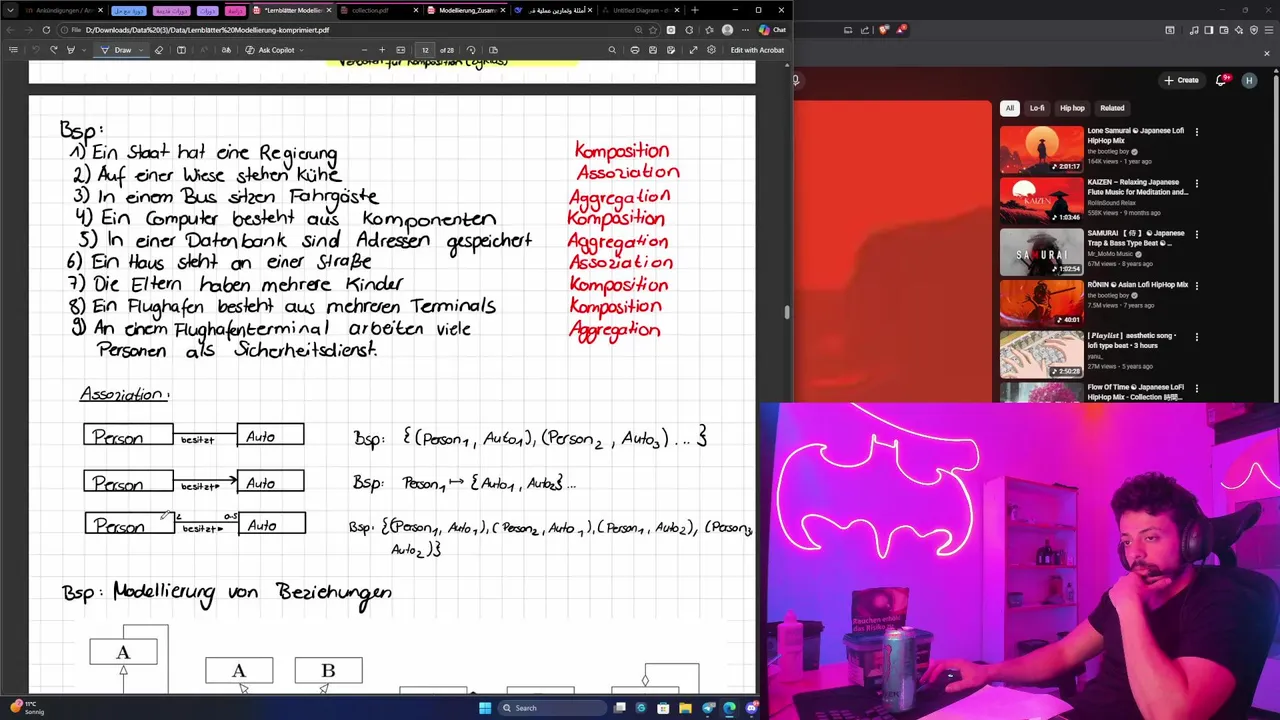 Ankündigungen / An
دورة مع حل
دورات قديمة
دورات
دراسة
*Lernblätter Modellie
collection.pdf
Modellierung_Zusam
Untitled Diagram - d
File
D:/Downloads/Data%20(3)/Data/Lernblätter%20Modellierung-komprimiert.pdf
Chat
Draw
Ask Copilot
12
of 28
Edit with Acrobat
Verboten für Komposition (Zyklus)
Bsp:
1) Ein Staat hat eine Regierung Komposition
2) Auf einer Wiese stehen Kühe Assoziation
3) In einem Bus sitzen Fahrgäste Aggregation
4) Ein Computer besteht aus Komponenten Komposition
5) In einer Datenbank sind Adressen gespeichert Aggregation
6) Ein Haus steht an einer Straße Assoziation
7) Die Eltern haben mehrere Kinder Komposition
8) Ein Flughafen besteht aus mehreren Terminals Komposition
9) An einem Flughafenterminal arbeiten viele Aggregation
Personen als Sicherheitsdienst.
Assoziation:
Person besitzt Auto Bsp: {(Person1, Auto1), (Person2, Auto3) ... }
Person besitzt Auto Bsp: Person1 ↦ {Auto1, Auto2} ...
Person 2 besitzt 0-5 Auto Bsp: {(Person1, Auto1), (Person2, Auto1), (Person1, Auto2), (Person3,
Auto2)}
Bsp: Modellierung von Beziehungen
A
A B
Create
9+
H
All
Lo-fi
Hip hop
Related
Lone Samurai ☯ Japanese Lofi
HipHop Mix
the bootleg boy
164K views • 1 year ago
2:01:17
KAIZEN – Relaxing Japanese
Flute Music for Meditation and...
RollinSound Relax
558K views • 9 months ago
1:03:46
SAMURAI【侍】☯ Japanese
Trap & Bass Type Beat ☯ ...
Mr_MoMo Music
67M views • 8 years ago
1:02:54
RŌNIN ☯ Asian Lofi HipHop Mix
the bootleg boy
7.5M views • 7 years ago
40:01
[ Playlist ] aesthetic song •
lofi type beat • 3 hours
yanu_
27M views • 5 years ago
2:50:28
Flow Of Time ☯ Japanese LoFi
HipHop Mix - Collection
Rauchen
das Risiko
11°C
Sonnig
Search